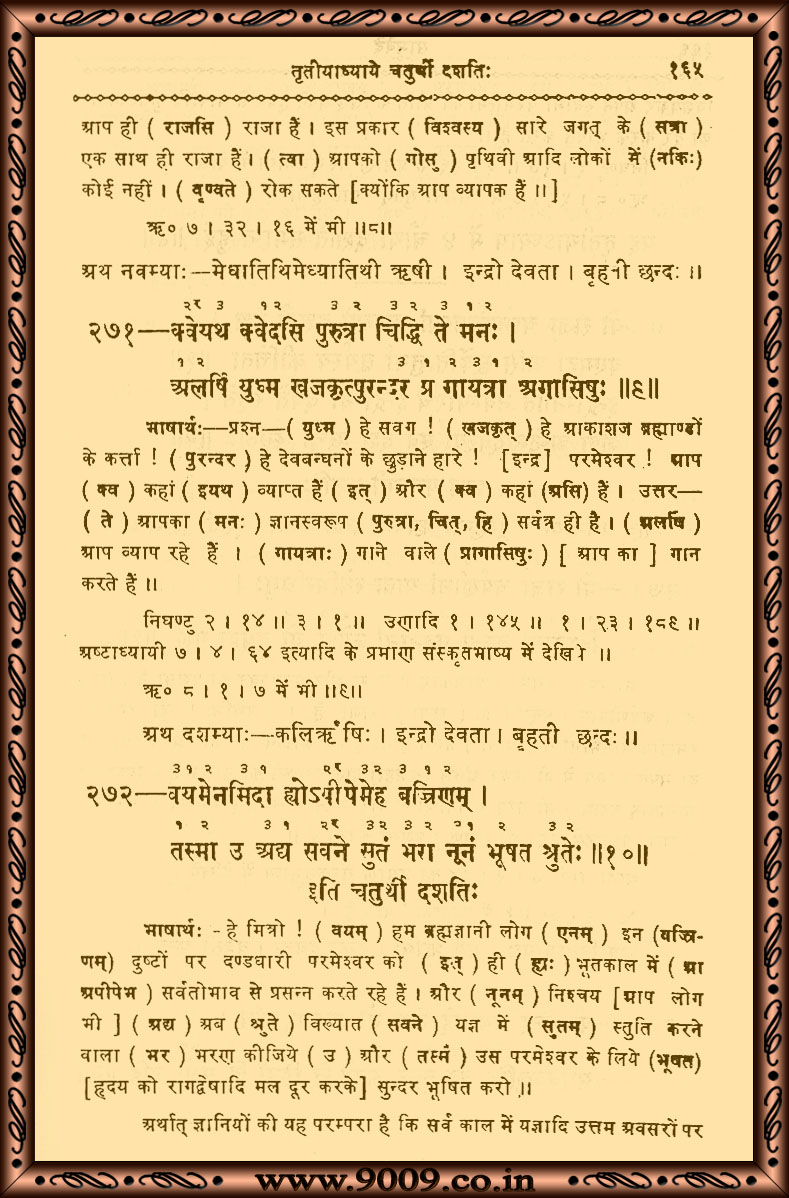 तृतीयाध्याये चतुर्थी दशतिः १६५
आप ही ( राजसि ) राजा हैं । इस प्रकार ( विश्वस्य ) सारे जगत् के ( सत्रा )
एक साथ ही राजा हैं । ( त्वा ) आपको ( गोसु ) पृथिवी आदि लोकों में (नकिः)
कोई नहीं । ( वृण्वते ) रोक सकते [क्योंकि आप व्यापक हैं ॥]
ऋ० ७ । ३२ । १६ में भी ॥८॥
अथ नवम्याः—मेधातिथिमेध्यातिथी ऋषी । इन्द्रो देवता । बृहती छन्दः ॥
२र ३ १२ ३ २ ३ २ ३ १ २
२७१—क्वेयथ क्वेदसि पुरुत्रा चिद्धि ते मनः ।
१ २ ३ १ २ ३ १ २
अलर्षि युध्म खजकृत्पुरन्दर प्र गायत्रा अगासिषुः ॥९॥
भाषार्थः—प्रश्न—( युध्म ) हे सवग ! ( खजकृत् ) हे आकाशज ब्रह्माण्डों
के कर्त्ता ! ( पुरन्दर ) हे देवबन्धनों के छुड़ाने हारे ! [इन्द्र] परमेश्वर ! आप
( क्व ) कहां ( इयथ ) व्याप्त हैं ( इत् ) और ( क्व ) कहां (असि) हैं । उत्तर—
( ते ) आपका ( मनः ) ज्ञानस्वरूप ( पुरुत्रा, चित्, हि ) सर्वत्र ही है । ( अलर्षि )
आप व्याप रहे हैं । ( गायत्राः ) गाने वाले ( प्रागासिषुः ) [ आप का ] गान
करते हैं ॥
निघण्टु २ । १४ ॥ ३ । १ ॥ उणादि १ । १४५ ॥ १ । २३ । १८९ ॥
अष्टाध्यायी ७ । ४ । ६४ इत्यादि के प्रमाण संस्कृतभाष्य में देखिये ॥
ऋ० ८ । १ । ७ में भी ॥९॥
अथ दशम्याः—कलिर्ऋषिः । इन्द्रो देवता । बृहती छन्दः ॥
३१२ ३ १ २र ३२ ३ १ २
२७२—वयमेनमिदा ह्योऽपीपेमेह वज्रिणम् ।
१ २ ३ १ २र ३२ ३ २ ३१ २ ३ २
तस्मा उ अद्य सवने सुतं भरा नूनं भूषत श्रुतेः ॥१०॥
इति चतुर्थी दशतिः
भाषार्थः - हे मित्रो ! ( वयम् ) हम ब्रह्मज्ञानी लोग ( एनम् ) इन (वज्रि-
णम्) दुष्टों पर दण्डधारी परमेश्वर को ( इत् ) ही ( ह्यः ) भूतकाल में ( आ
अपीपेम ) सर्वतोभाव से प्रसन्न करते रहे हैं । और ( नूनम् ) निश्चय [आप लोग
भी ] ( अद्य ) अब ( श्रुते ) विख्यात ( सवने ) यज्ञ में ( सुतम् ) स्तुति करने
वाला ( भर ) भरण कीजिये ( उ ) और ( तस्मै ) उस परमेश्वर के लिये (भूषत)
[हृदय को रागद्वेषादि मल दूर करके] सुन्दर भूषित करो ॥
अर्थात् ज्ञानियों की यह परम्परा है कि सर्व काल में यज्ञादि उत्तम अवसरों पर
www.9009.co.in